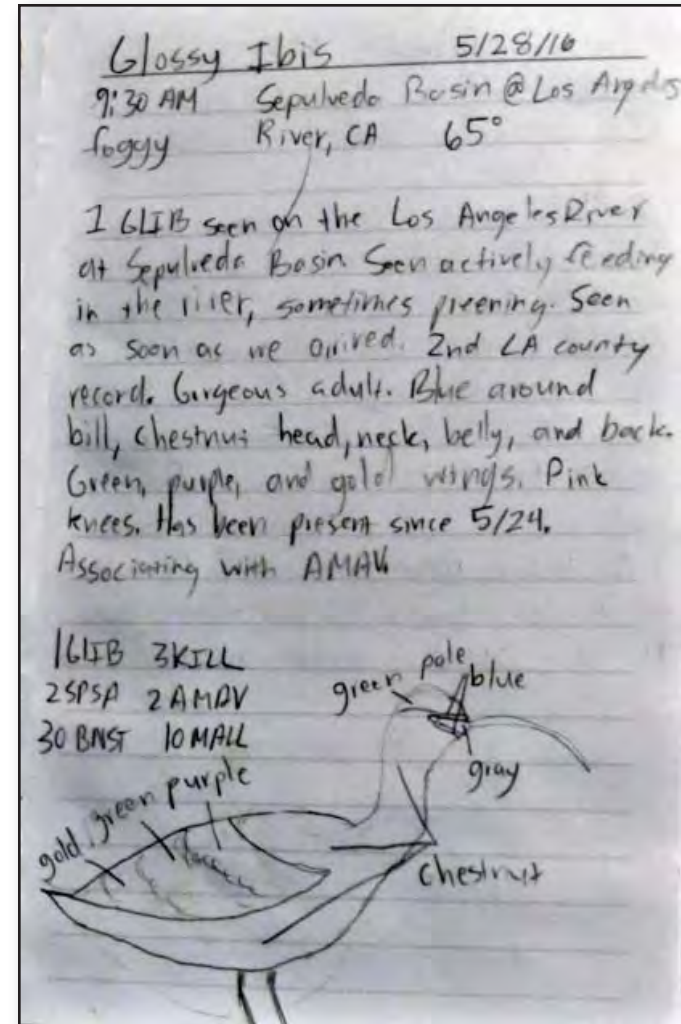 Glossy Ibis 5/28/16
9:30 AM Sepulveda Basin @ Los Angeles
foggy River, CA 65°
1 GLIB seen on the Los Angeles River
at Sepulveda Basin. Seen actively feeding
in the river, sometimes preening. Seen
as soon as we arrived. 2nd LA county
record. Gorgeous adult. Blue around
bill, chestnut head, neck, belly, and back.
Green, purple, and gold wings. Pink
knees. Has been present since 5/24.
Associating with AMAV.
1 GLIB 3 KILL
2 SPSA 2 AMAV
30 BNST 10 MALL
green pale blue
gray
gold green purple
chestnut